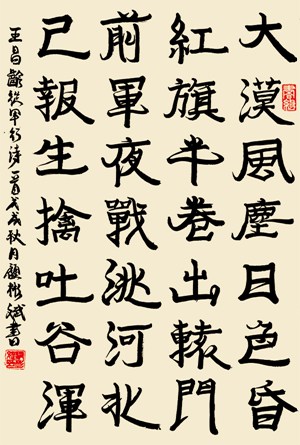 大漠風塵日色昏
紅旗半卷出轅門
前軍夜戰洮河北
已報生擒吐谷渾
王昌齡從軍行詩一首戊戌秋月顧彬斌書